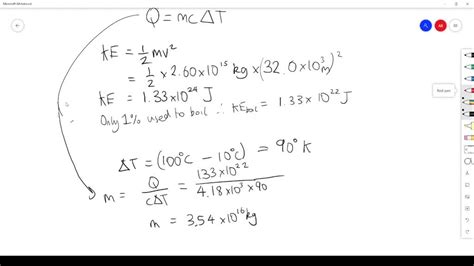 Q = mcΔT
KE = 1/2 mv²
= 1/2 × 2.60×10¹⁵ kg × (32.0×10³ m)²
KE = 1.33×10²⁴ J
Only 1% used to boil ∴ KE boil = 1.33×10²² J
ΔT = (100°C − 10°C) = 90°K
m = Q/cΔT = 133×10²²/4.18×10³×90
m = 3.54×10¹⁶ kg